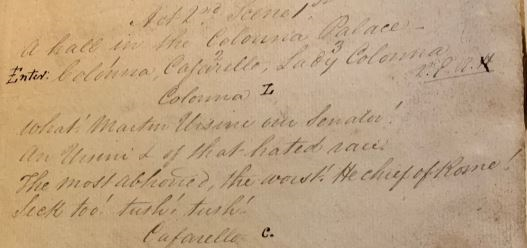 Act 2nd Scene 1st
A hall in the Colonna Palace —
Enter: Colonna, Cafarello, Lady Colonna
2 3
Colonna L
What! Martin Ursini our Senator!
An Ursini & of that hated race!
The most abhorred, the worst! He chief of Rome!
Sick too! tush! tush!
Cafarello C.